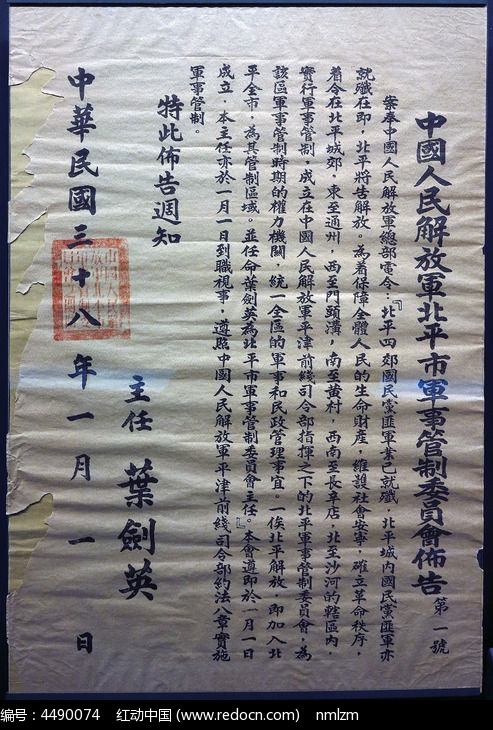 中國人民解放軍北平市軍事管制委員會佈告 第一號
案奉中國人民解放軍總部電令：『北平四郊國民黨匪軍業已就殲，北平城內國民黨匪軍亦
就殲在即，北平將告解放。為着保障全體人民的生命財產，維護社會安寧，確立革命秩序，
着令在北平城郊，東至通州，西至門頭溝，南至黃村，西南至長辛店，北至沙河的轄區內，
實行軍事管制，成立在中國人民解放軍平津前綫司令部指揮之下的北平軍事管制委員會，為
該區軍事管制時期的權力機關，統一全區的軍事和民政管理事宜。一俟北平解放，即加入北
平全市，為其管制區域。並任命葉劍英為北平市軍事管制委員會主任。』本會遵即於一月一日
成立，本主任亦於一月一日到職視事，遵照中國人民解放軍平津前綫司令部約法八章實施
軍事管制。
特此佈告週知
主任 葉劍英
中華民國三十八年一月一日
编号：4490074 红动中国 (www.redocn.com) nmlzm